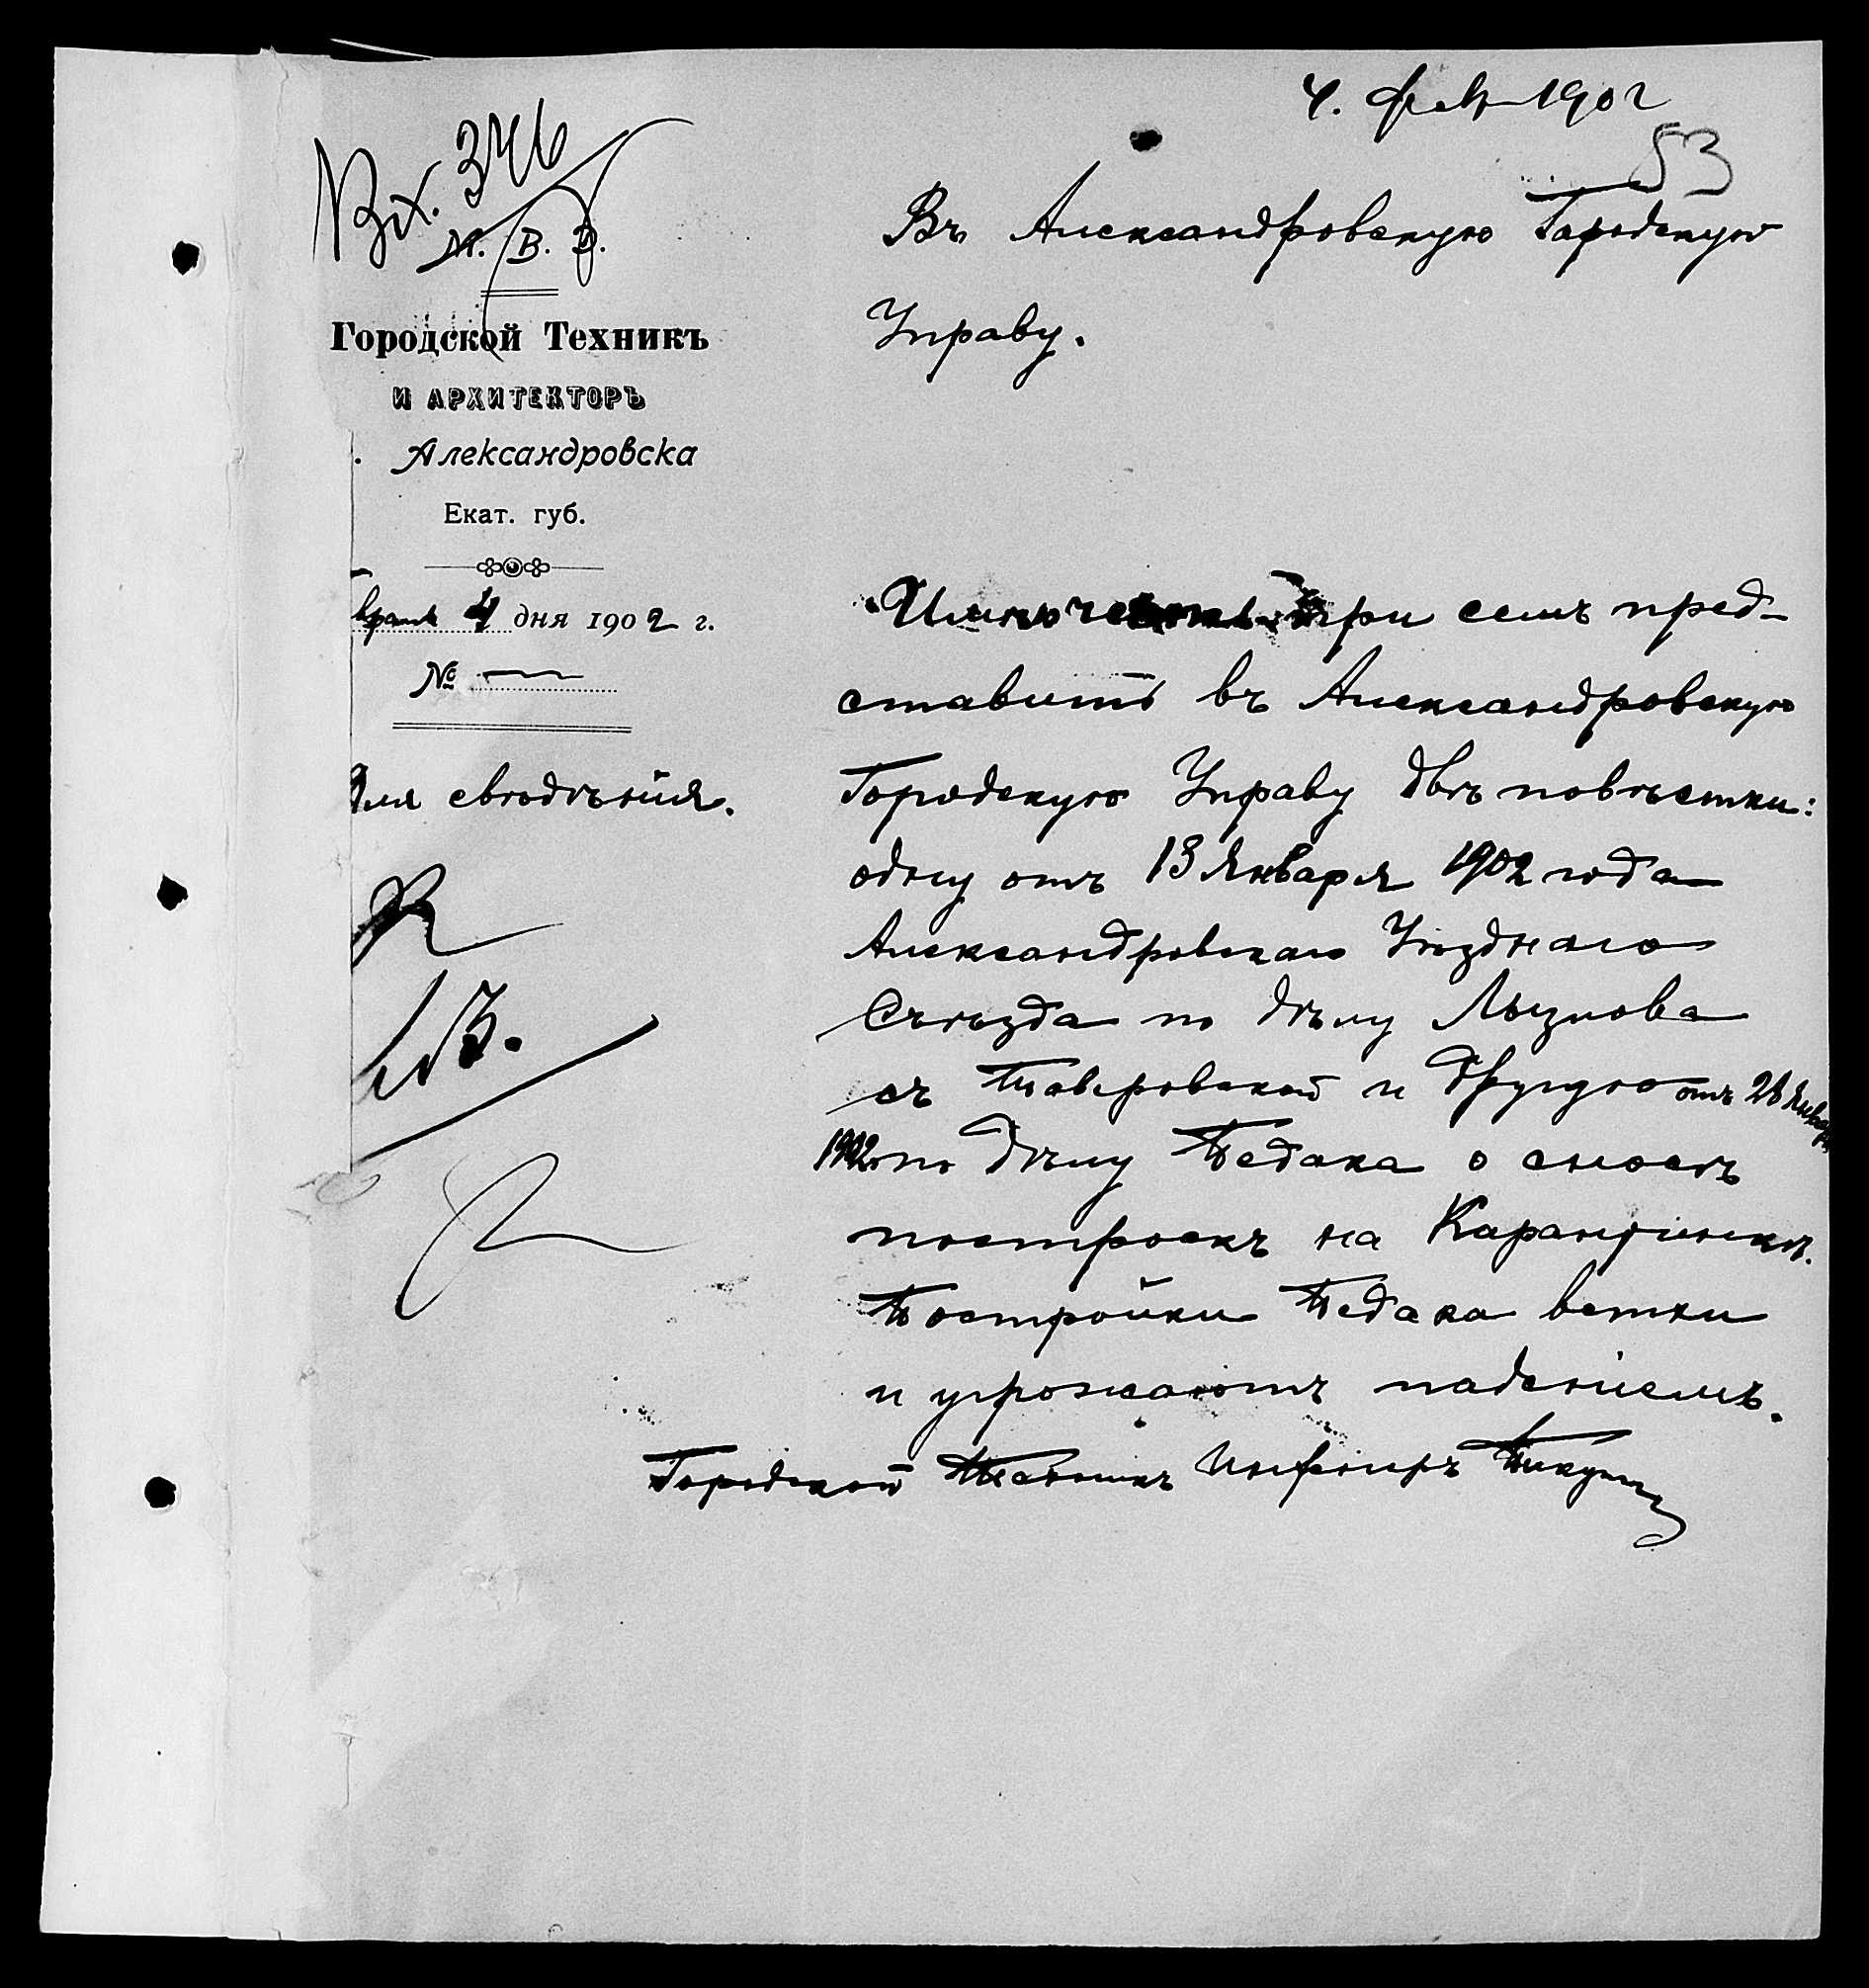 4. фев 1902
53
Вх. 346
М. В. Д.
Городской Техникъ
И АРХИТЕКТОРЪ
Александровска
Екат. губ.
враля 4 дня 1902 г.
№ —
Для свѣдѣнія.
Въ Александровскую Городскую
Управу.
Имѣю честь при семъ пред-
ставить въ Александровскую
Городскую Управу двѣ повѣстки:
одну отъ 13 Января 1902 года
Александровскаго Уѣзднаго
Съѣзда по дѣлу Лызлова
съ и другую отъ 28 Января
1902 по дѣлу Педака о сносѣ
построекъ на Карантинкѣ.
Постройки Педака ветхи
и угрожаютъ паденіемъ.
Городской Техникъ Инженеръ